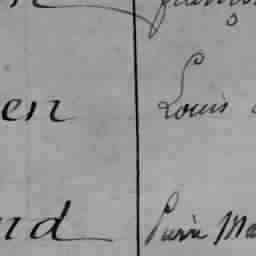 en Louis
nd Pierre Ma